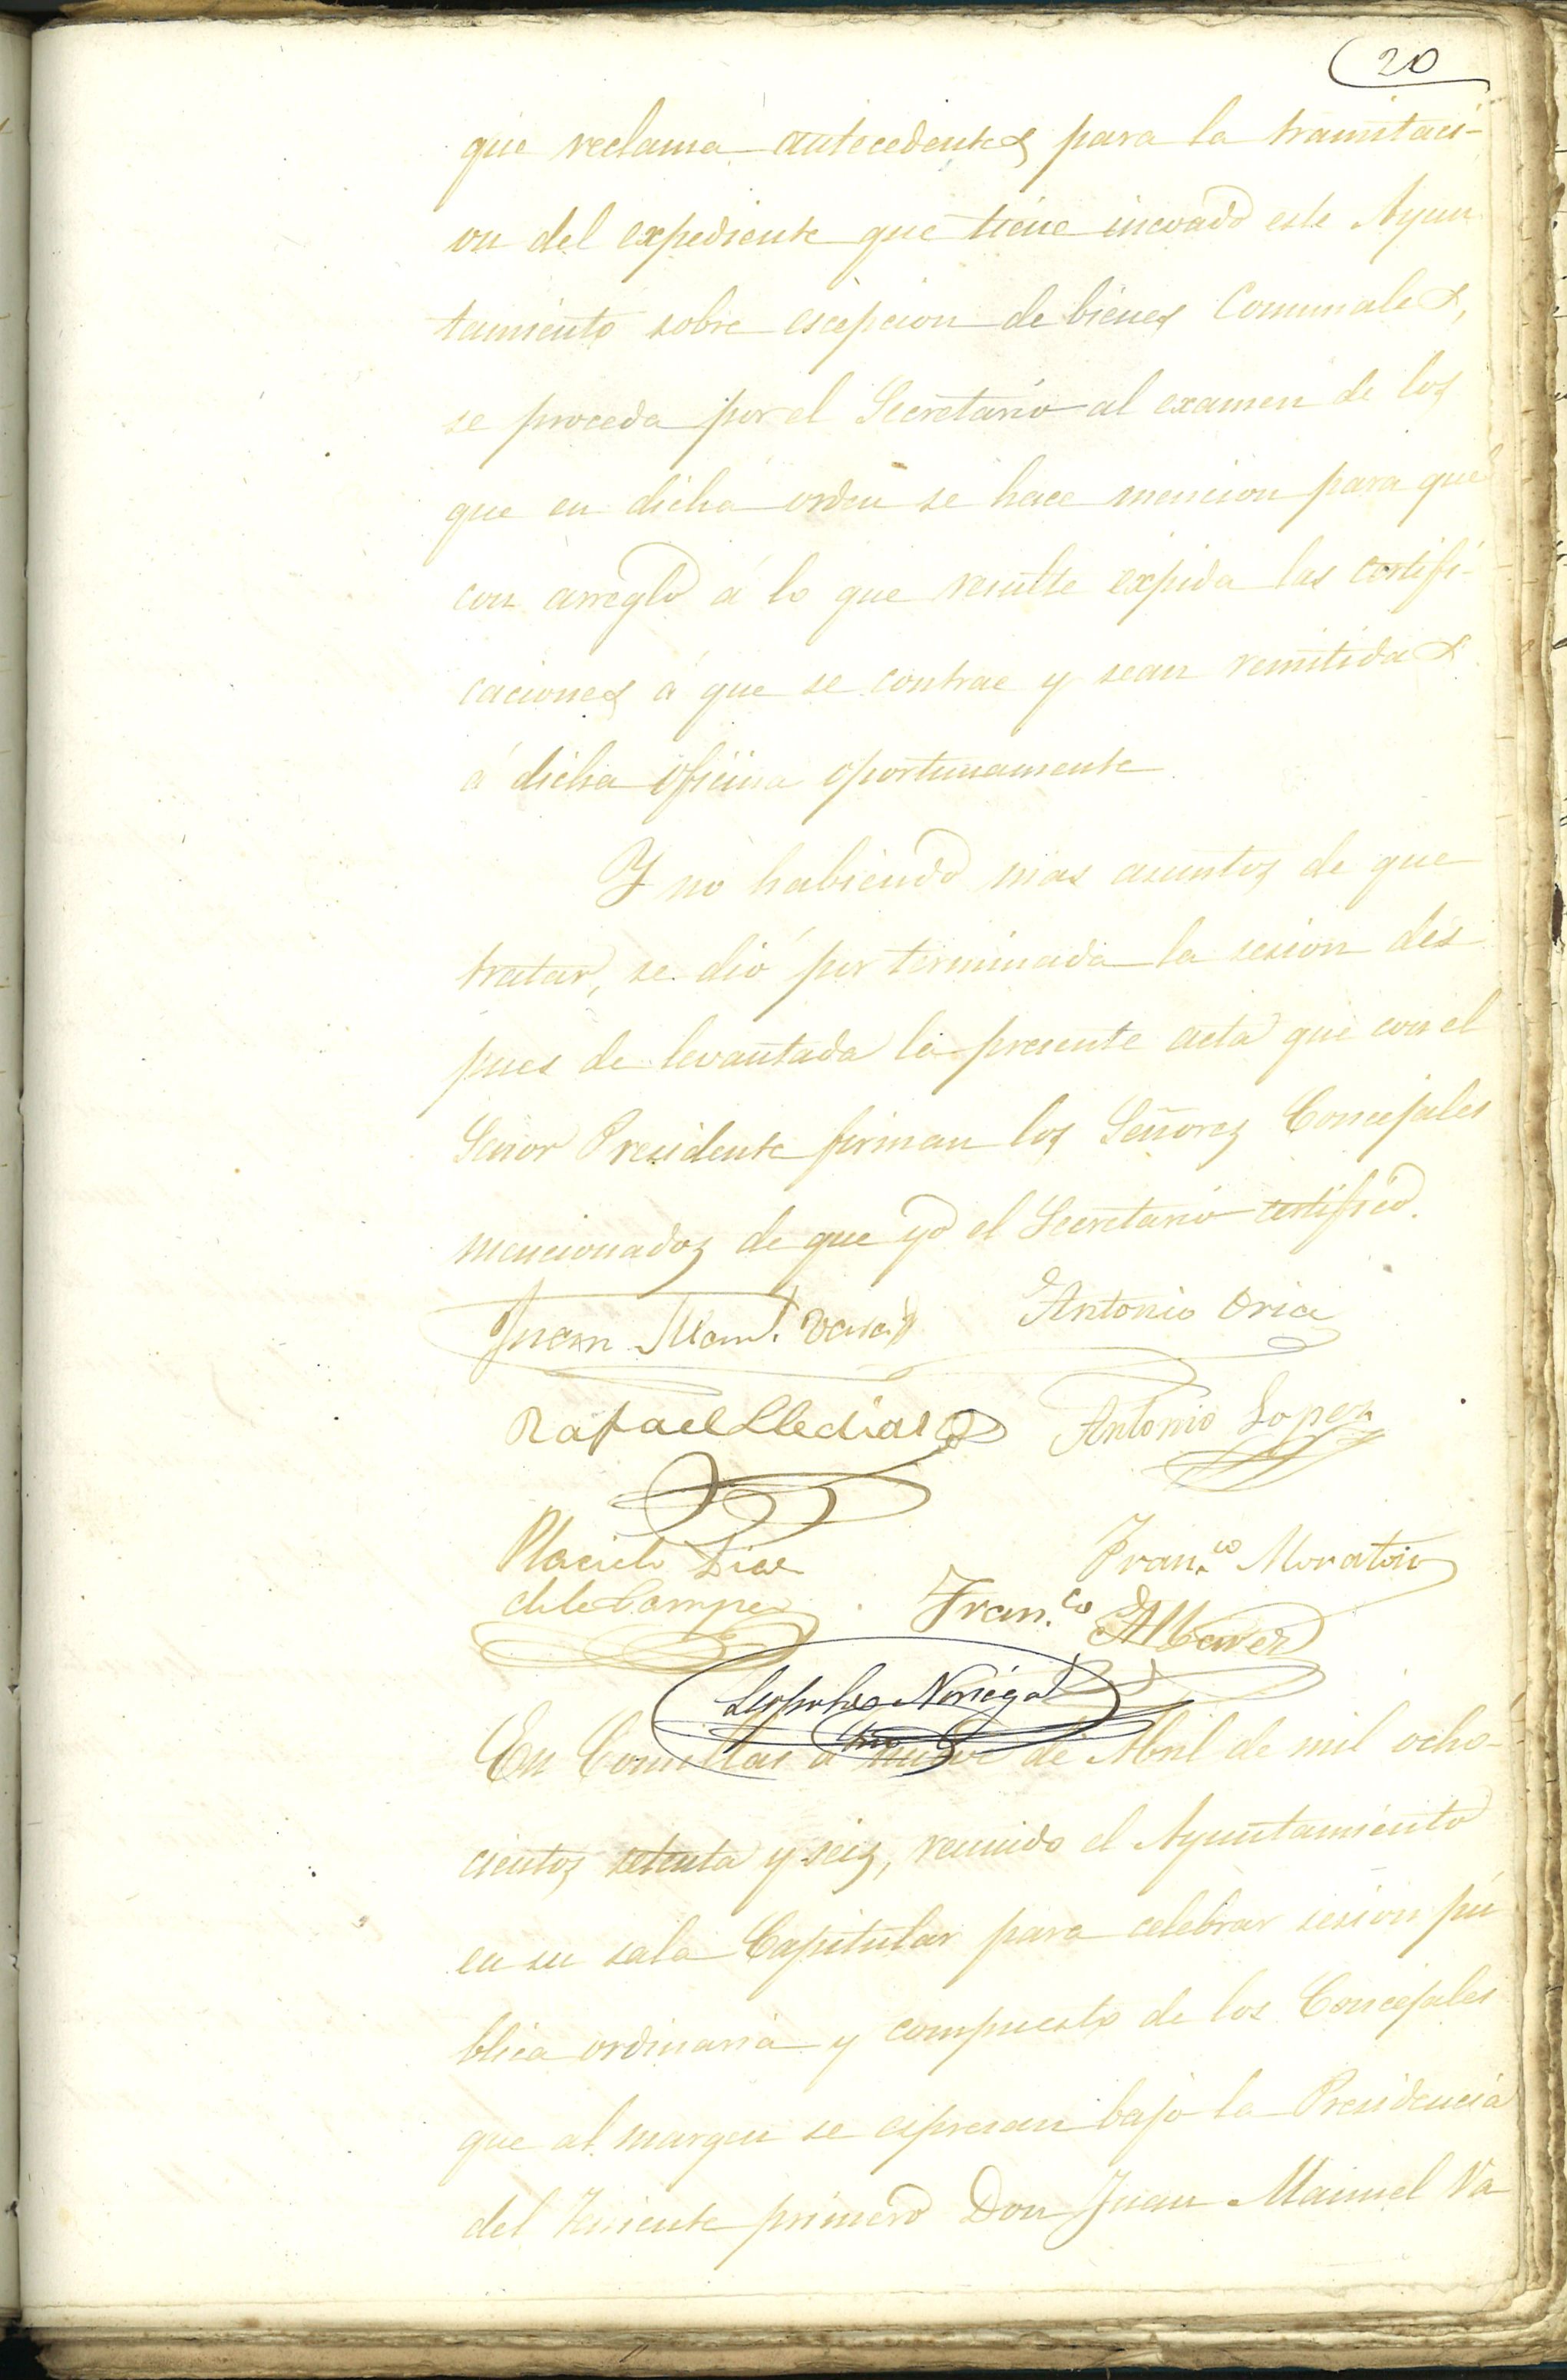 20
que reclama antecedentes para la tramitaci-
on del expediente que tiene incoado este Ayun
tamiento sobre escepcion de bienes Comunales,
se proceda por el Secretario al examen de los
que en dicha orden se hace mencion para que
con arreglo á lo que resulte expida las certifi-
caciones á que se contrae y sean remitidas
á dicha oficina oportunamente
Y no habiendo mas asuntos de que
tratar, se dió por terminada la sesion des
pues de levantada la presente acta que con el
Señor Presidente firman los Señores Concejales
mencionados de que yo el Secretario certifico.
Juan Man.l Antonio Oria
Rafael Antonio Lopez
Placido Diaz Fran.co Moraton
de la Campa Fran.co
Leopoldo Noriega
Srio
En Comillas á nueve de Abril de mil ocho-
cientos setenta y seis, reunido el Ayuntamiento
en su sala Capitular para celebrar sesion pú
blica ordinaria y compuesto de los Concejales
que al margen se espresan bajo la Presidencia
del Teniente primero Don Juan Manuel Va